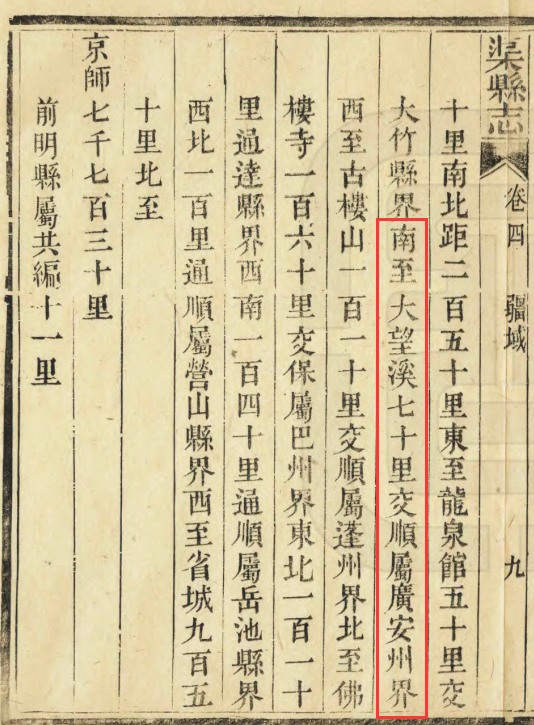 渠縣志 卷四 疆域 九
十里南北距二百五十里東至龍泉館五十里交
大竹縣界南至大望溪七十里交順屬廣安州界
西至古樓山一百一十里交順屬蓬州界北至佛
樓寺一百六十里交保屬巴州界東北一百一十
里通達縣界西南一百四十里通順屬岳池縣界
西北一百里通順屬營山縣界西至省城九百五
十里北至
京師七千七百三十里
前明縣屬共編十一里